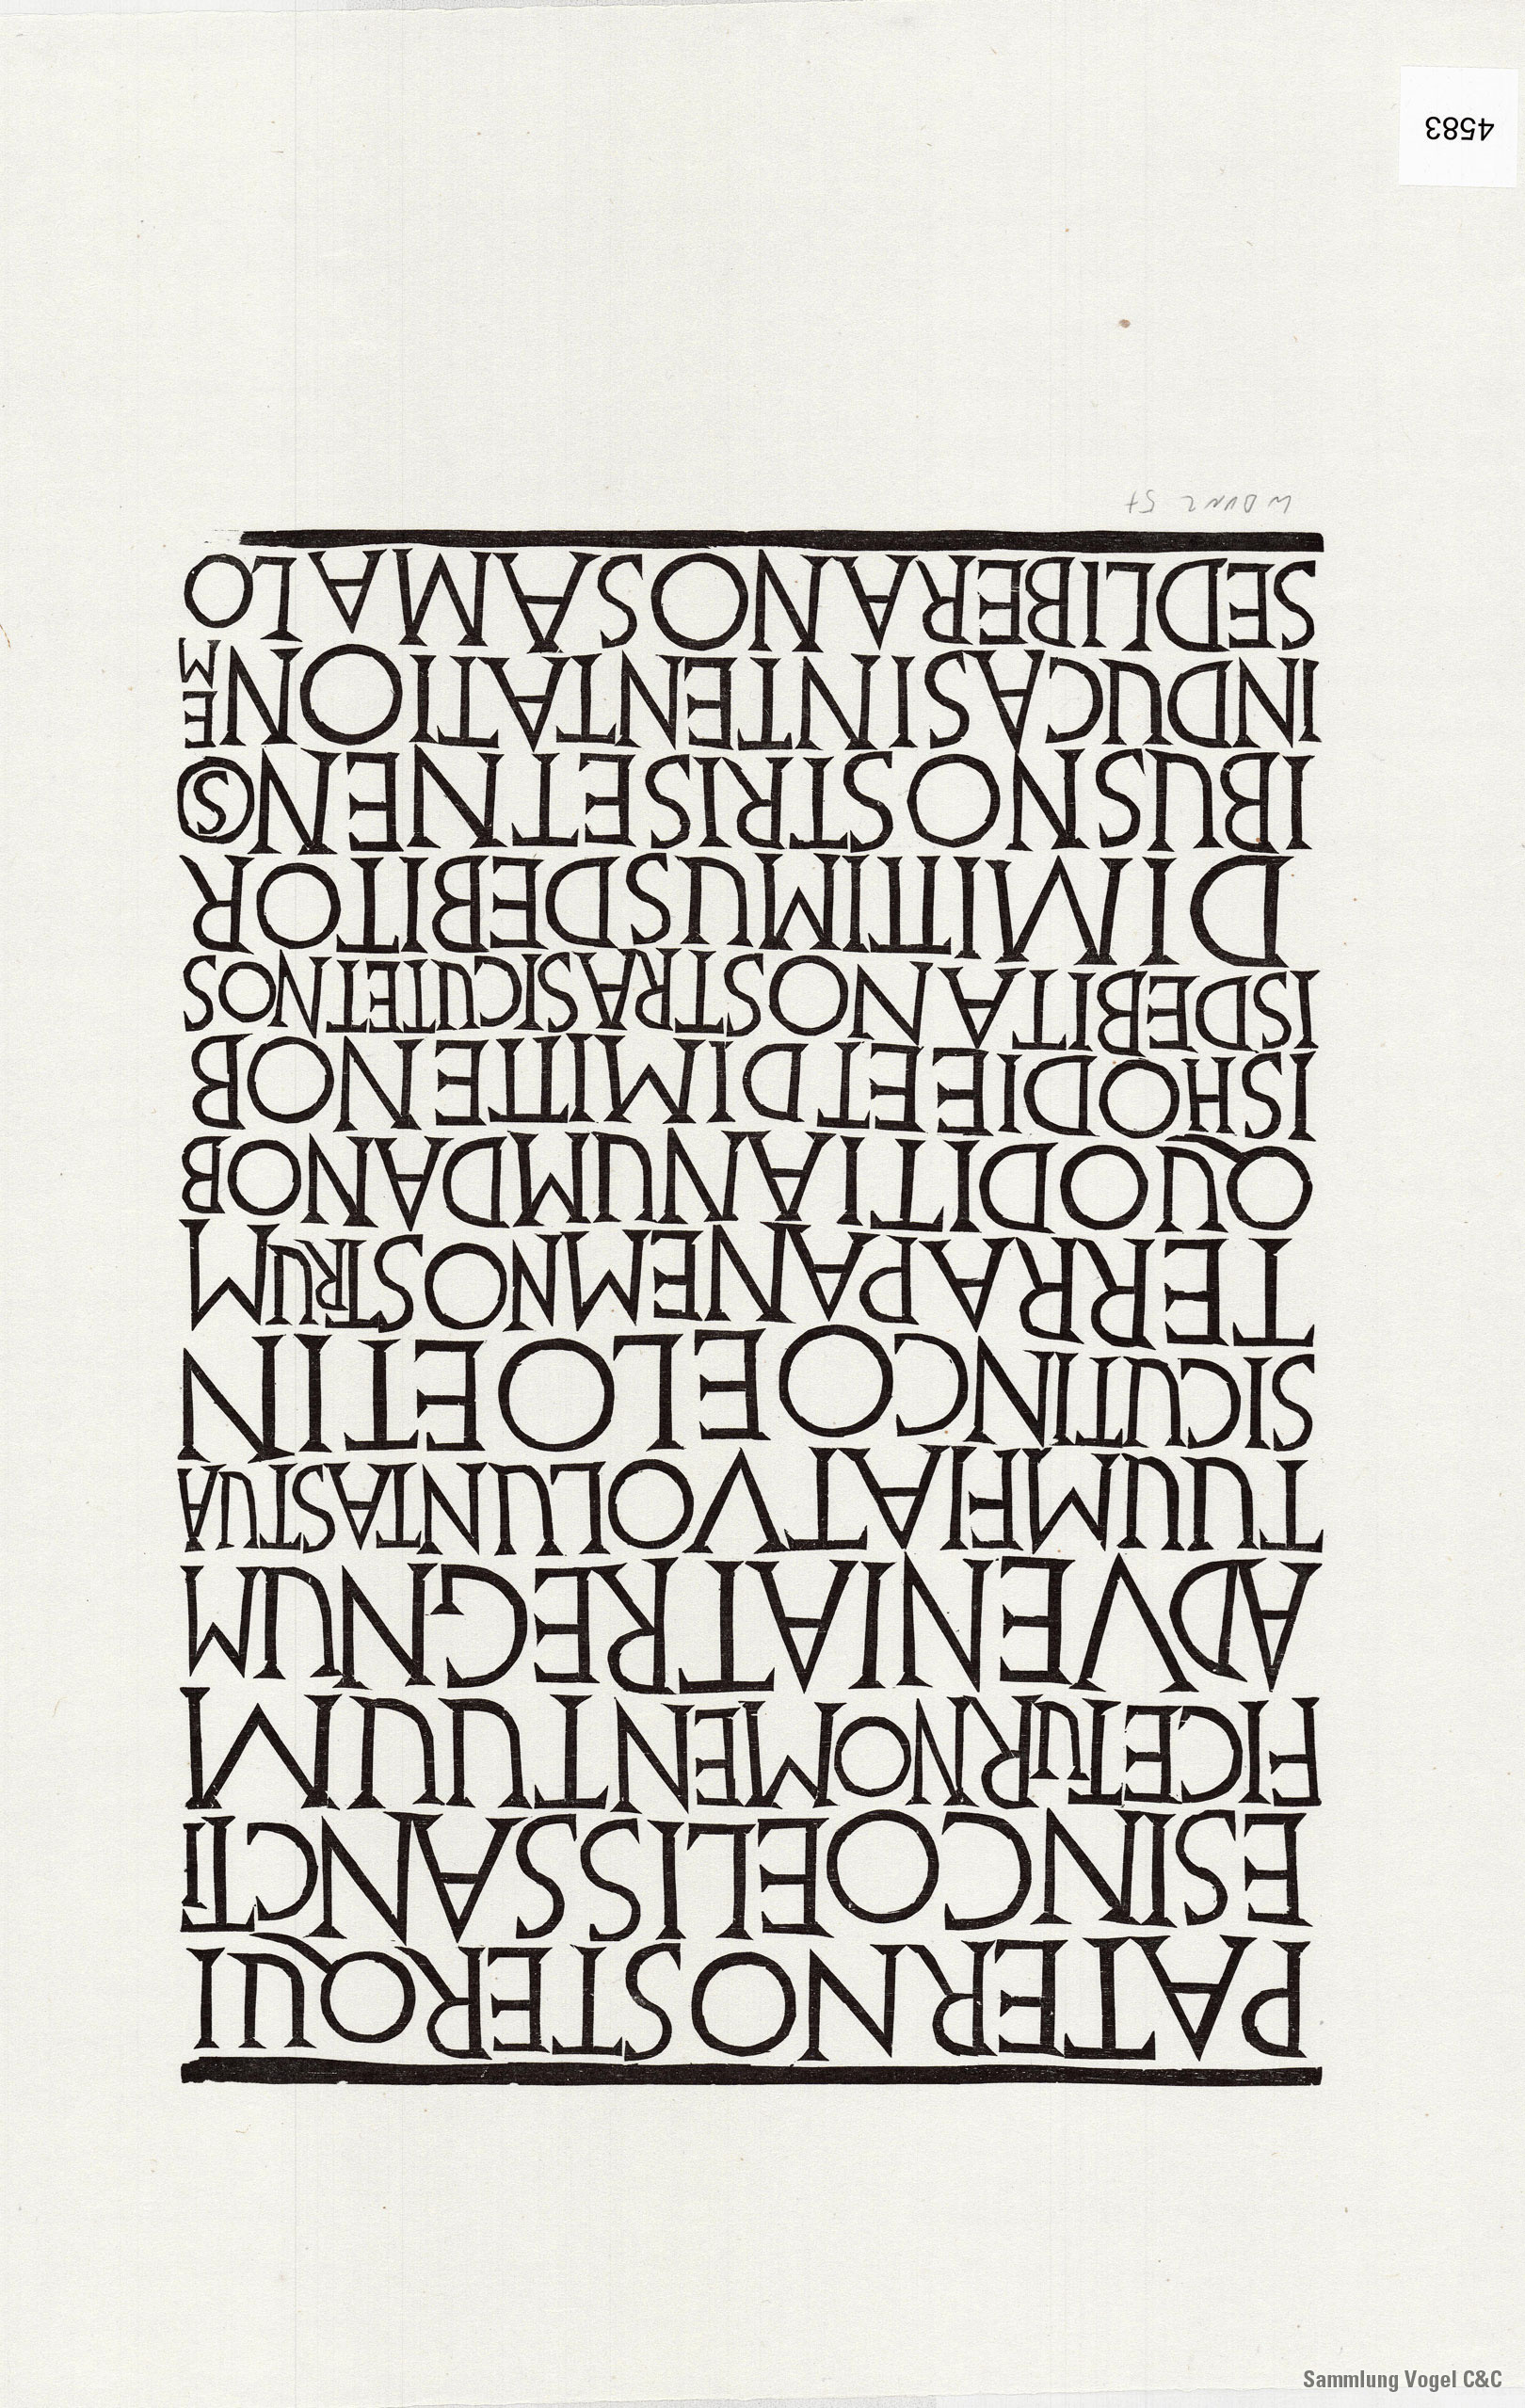 PATERNOSTERQUI
ESINCOELISSANCTI
FICETURNOMENTUUM
ADVENIATREGNUM
TUUMFIATVOLUNTASTUA
SICUTINCOELOETIN
TERRAPANEMNOSTRUM
QUODITIANUMDANOB
ISHODIEETDIMITTENOB
ISDEBITANOSTRASICUTETNOS
DIMITTIMUSDEBITOR
IBUSNOSTRISETNENOS
INDUCASINTENTATIONEM
SEDLIBERANOSAMALO
4583
Sammlung Vogel C&C